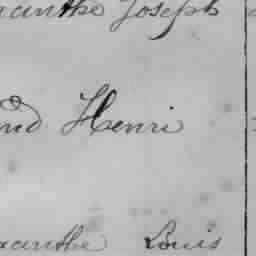 acanthe Joseph
and Henri
acanthe Louis